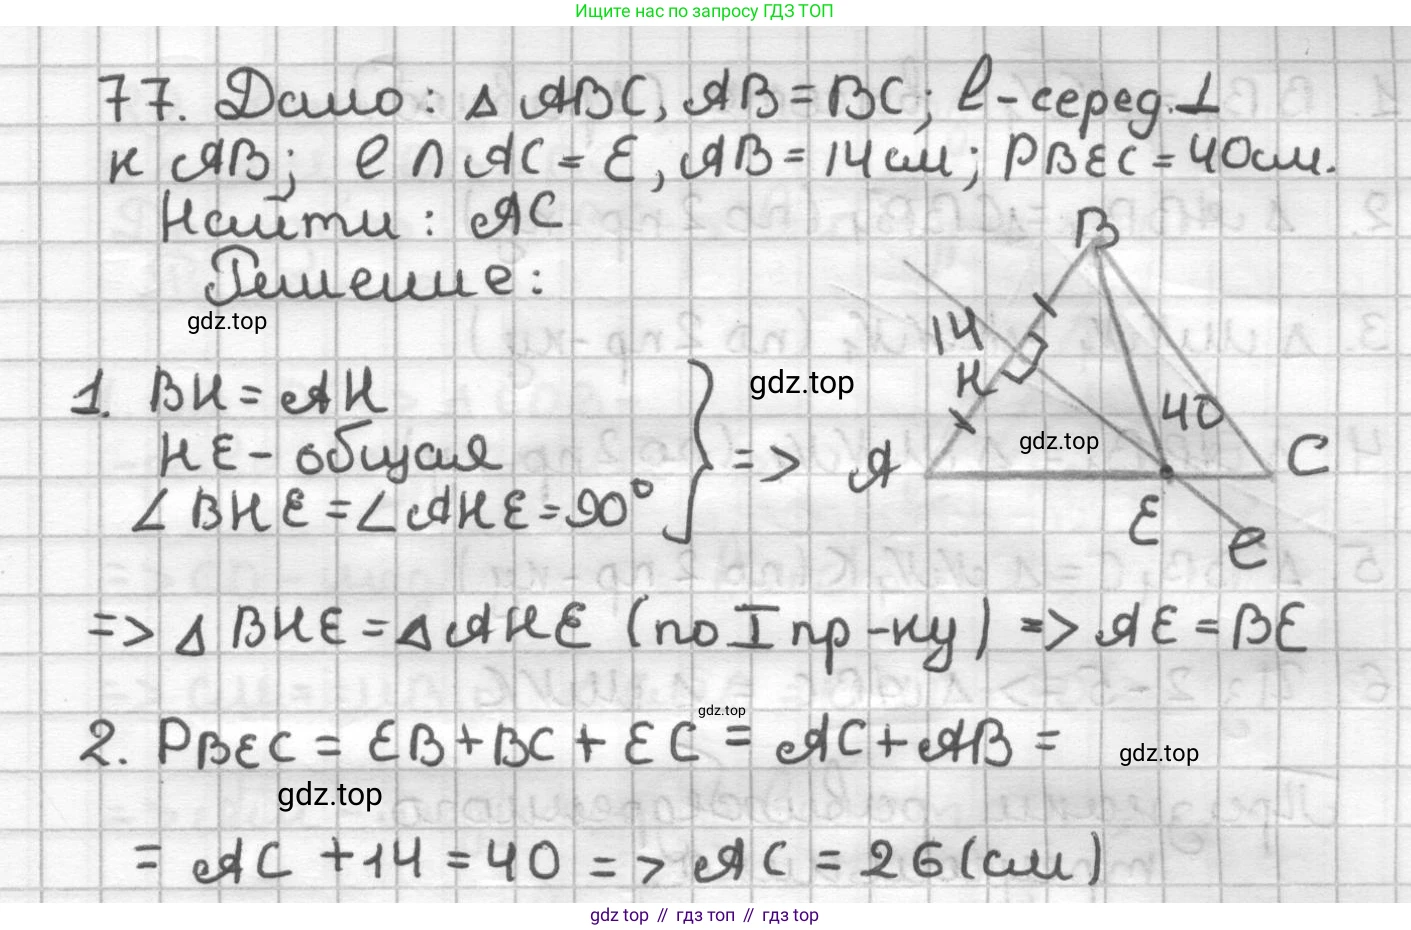 Ищите нас по запросу ГДЗ ТОП
77. Дано: △ ABC, AB = BC; l - серед. ⊥
к AB; l ∩ AC = E, AB = 14 см; PBEC = 40 см.
Найти: AC
Решение:
gdz.top
B
14
K
40
A
C
E
l
gdz.top
gdz.top
1. BK = AK
KE - общая
∠BKE = ∠AKE = 90°
=>
=> △ BKE = △ AKE (по I пр-ку) => AE = BE
gdz.top
2. PBEC = EB + BC + EC = AC + AB =
gdz.top
gdz.top
= AC + 14 = 40 => AC = 26 (см)
gdz top // гдз топ // gdz top